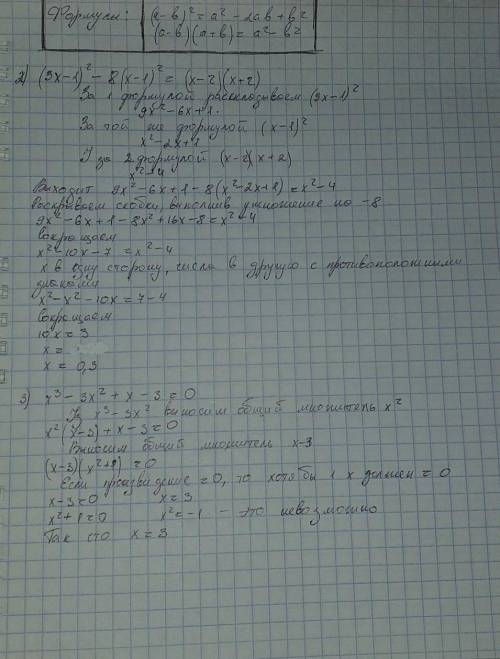 Формулы:
(a-b)² = a² - 2ab + b²
(a-b)(a+b) = a² - b²
2) (3x-1)² - 8(x-1)² = (x-2)(x+2)
За 1 формулой раскладываем (3x-1)²
9x² - 6x + 1.
За той же формулой (x-1)²
x² - 2x + 1
І за 2 формулой (x-2)(x+2)
x² - 4
Выходит 9x² - 6x + 1 - 8(x² - 2x + 1) = x² - 4
Раскрываем скобки, выполнив умножение на -8
9x² - 6x + 1 - 8x² + 16x - 8 = x² - 4
Сокращаем
x² + 10x - 7 = x² - 4
x в одну сторону, числа в другую с противоположными
знаками
x² - x² - 10x = 7 - 4
Сокращаем
10x = 3
x =
x = 0,3
3) x³ - 3x² + x - 3 = 0
Из x³ - 3x² выносим общий множитель x²
x²(x-3) + x - 3 = 0
Выносим общий множитель x-3
(x-3)(x²+1) = 0
Если произведение = 0, то хотя бы 1 x должен = 0
x - 3 = 0 x = 3
x² + 1 = 0 x² = -1 - это невозможно
Так что x = 3